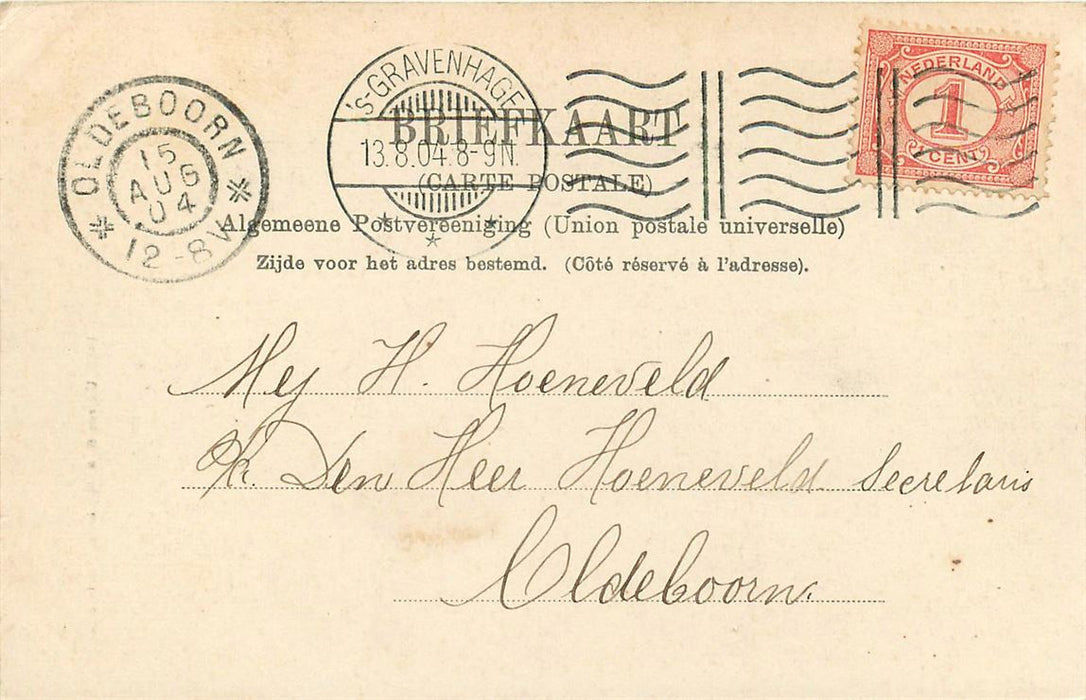 OLDEBOORN
15
AUG
04
12-8V
's-GRAVENHAGE
13.8.04.8-9N.
NEDERLAND
1
CENT
BRIEFKAART
(CARTE POSTALE)
Algemeene Postvereeniging (Union postale universelle)
Zijde voor het adres bestemd. (Côté réservé à l'adresse).
Mej H. Hoeneveld
Den Heer Hoeneveld Secretaris
Oldeboorn.